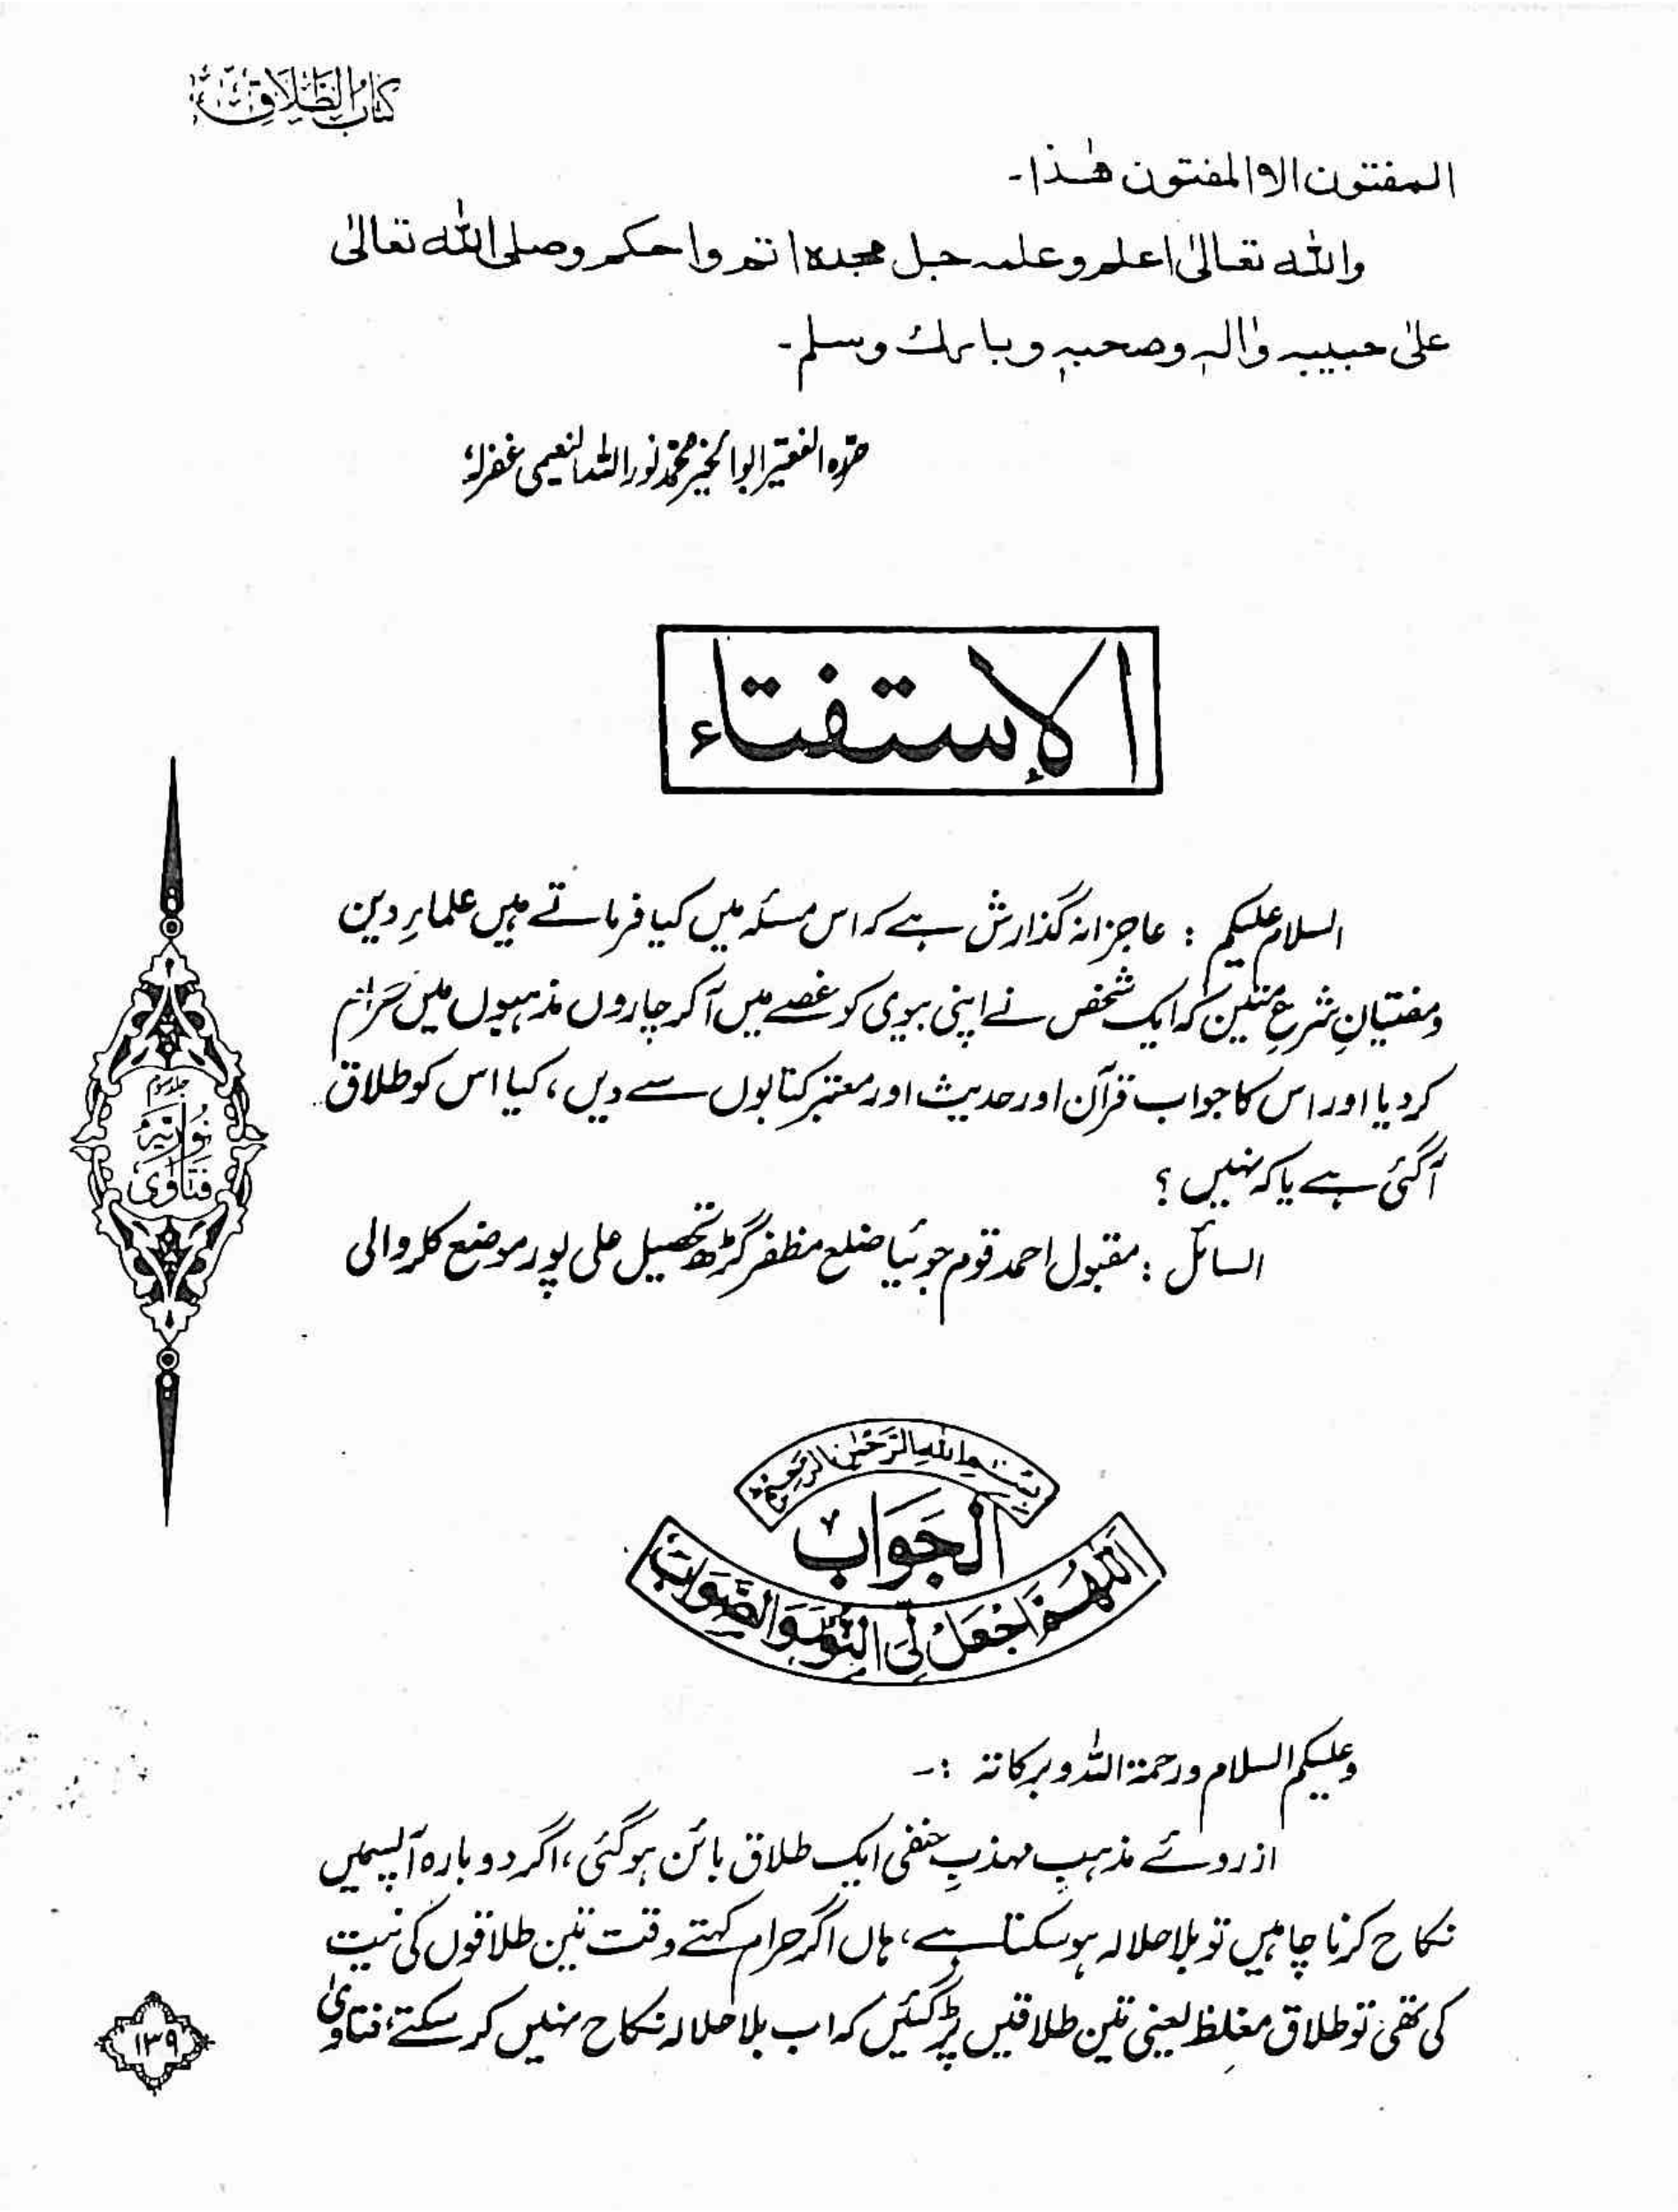 کتاب الطلاق
المفتون الا المفتون هٰذا۔
والله تعالیٰ اعلم وعلمه جل مجده اتم واحکم وصلی الله تعالیٰ
علیٰ حبیبہ واٰلہٖ وصحبہٖ وبارك وسلم۔
حرّرہ الفقیر ابو الخیر محمّد نور اللہ النعیمی غفرلہٗ
الإستفتاء
السلام علیکم : عاجزانہ گذارش ہے کہ اس مسئلہ میں کیا فرماتے ہیں علماءِ دین
ومفتیانِ شرعِ متین کہ ایک شخص نے اپنی بیوی کو غصے میں آکر چاروں مذہبوں میں حرام
کر دیا اور اس کا جواب قرآن اور حدیث اور معتبر کتابوں سے دیں، کیا اس کو طلاق
آگئی ہے یا کہ نہیں ؟
السائل : مقبول احمد قوم جوئیا ضلع مظفر گڑھ تحصیل علی پور موضع کلروالی
جلد سوم
نُوریّہ
فتاوٰی
بِسْمِ اللهِ الرَّحْمٰنِ الرَّحِیْمِ
الجَوَابُ
اَللّٰهُمَّ اجْعَلْ لِیَ النُّوْرَ وَالصَّوَابَ
وعلیکم السلام ورحمۃ اللہ وبرکاتہ :۔
از روئے مذہبِ مہذبِ حنفی ایک طلاق بائن ہوگئی، اگر دوبارہ آپسمیں
نکاح کرنا چاہیں تو بلا حلالہ ہوسکتا ہے، ہاں اگر حرام کہتے وقت تین طلاقوں کی نیت
کی تھی تو طلاق مغلظ یعنی تین طلاقیں پڑ گئیں کہ اب بلا حلالہ نکاح نہیں کر سکتے، فتاویٰ
۱۳۹